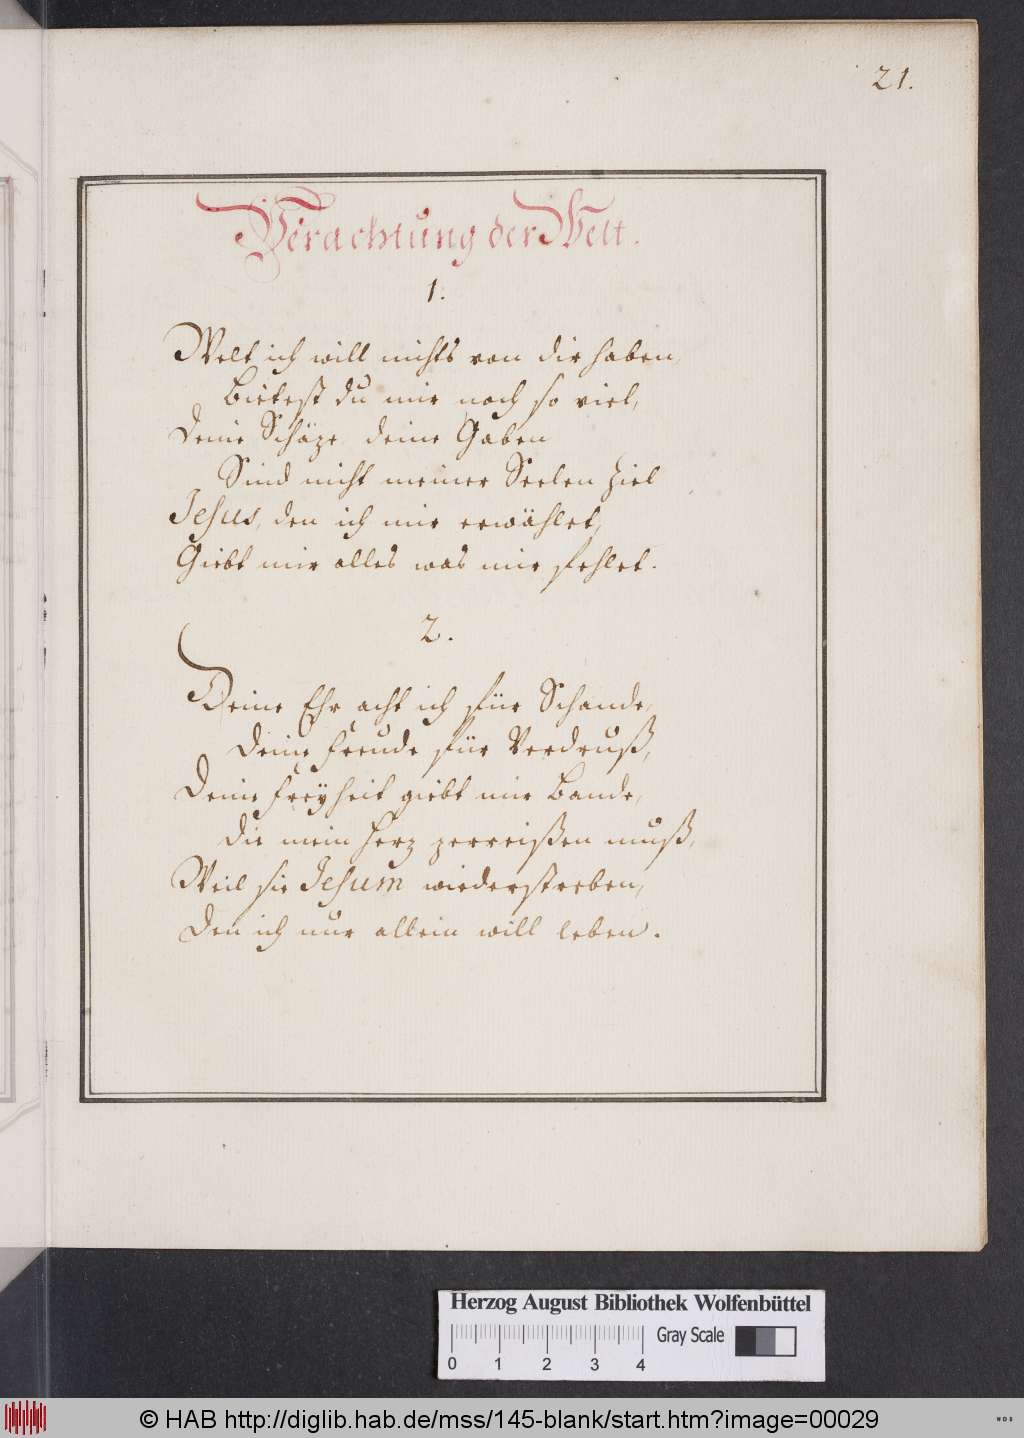 21.
Verachtung der Welt.
1.
Welt ich will nichts von dir haben,
Bietest du mir noch so viel,
Deine Schäze deine Gaben
Sind nicht meiner Seelen Ziel
Jesus, den ich mir erwählet,
Giebt mir alles was mir fehlet.
2.
Deine Ehr acht ich für Schande,
Deine Freude für Verdruß,
Deine Freyheit giebt mir Bande,
Die mein Herz zerreißen muß,
Weil sie Jesum wiederstreben,
Den ich nur allein will leben.
Herzog August Bibliothek Wolfenbüttel
0 1 2 3 4 Gray Scale
© HAB http://diglib.hab.de/mss/145-blank/start.htm?image=00029